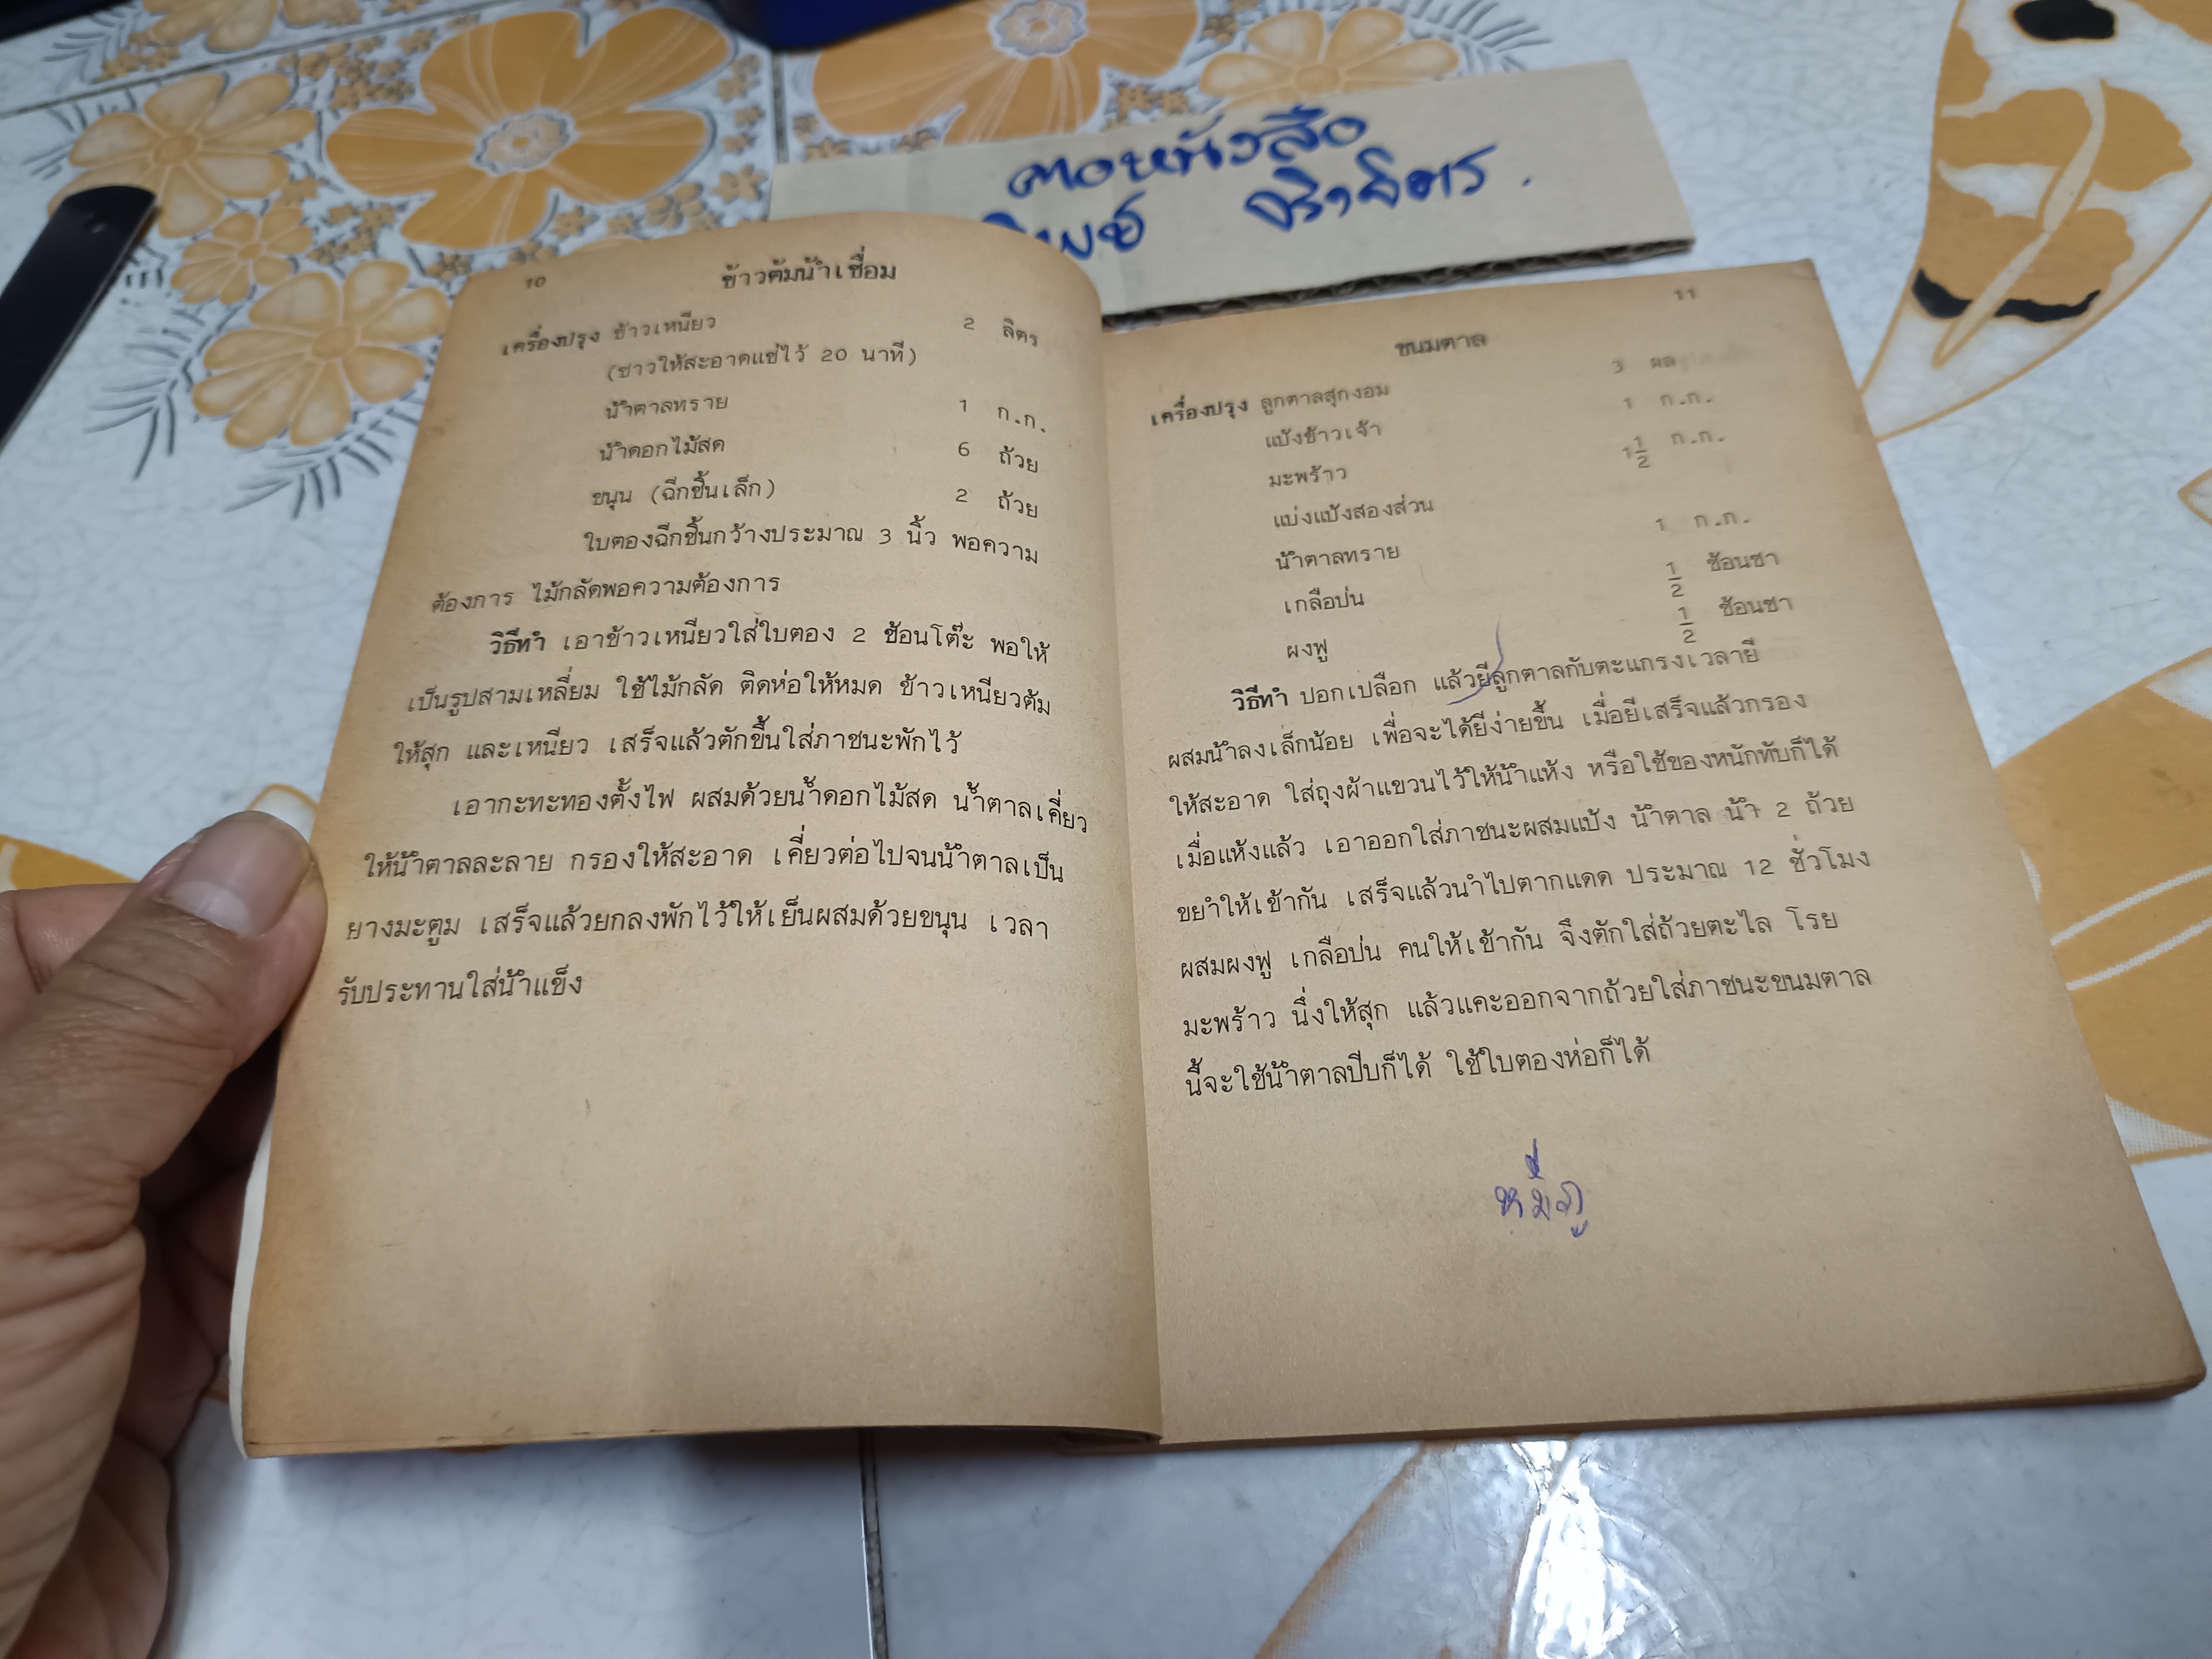 คอหนังสือ
10
ข้าวต้มน้ำเชื่อม
เครื่องปรุง ข้าวเหนียว 2 ลิตร
(ซาวให้สะอาดแช่ไว้ 20 นาที)
น้ำตาลทราย 1 ก.ก.
น้ำดอกไม้สด 6 ถ้วย
ขนุน (ฉีกชิ้นเล็ก) 2 ถ้วย
ใบตองฉีกชิ้นกว้างประมาณ 3 นิ้ว พอความ
ต้องการ ไม้กลัดพอความต้องการ
วิธีทำ เอาข้าวเหนียวใส่ใบตอง 2 ช้อนโต๊ะ พอให้
เป็นรูปสามเหลี่ยม ใช้ไม้กลัด ติดห่อให้หมด ข้าวเหนียวต้ม
ให้สุก และเหนียว เสร็จแล้วตักขึ้นใส่ภาชนะพักไว้
เอากะทะทองตั้งไฟ ผสมด้วยน้ำดอกไม้สด น้ำตาลเคี่ยว
ให้น้ำตาลละลาย กรองให้สะอาด เคี่ยวต่อไปจนน้ำตาลเป็น
ยางมะตูม เสร็จแล้วยกลงพักไว้ให้เย็นผสมด้วยขนุน เวลา
รับประทานใส่น้ำแข็ง
11
ขนมตาล
เครื่องปรุง ลูกตาลสุกงอม 3 ผล
แป้งข้าวเจ้า 1 ก.ก.
มะพร้าว 1½ ก.ก.
แบ่งแป้งสองส่วน
น้ำตาลทราย 1 ก.ก.
เกลือป่น ½ ช้อนชา
ผงฟู ½ ช้อนชา
วิธีทำ ปอกเปลือก แล้วยีลูกตาลกับตะแกรงเวลายี
ผสมน้ำลงเล็กน้อย เพื่อจะได้ยีง่ายขึ้น เมื่อยีเสร็จแล้วกรอง
ให้สะอาด ใส่ถุงผ้าแขวนไว้ให้น้ำแห้ง หรือใช้ของหนักทับก็ได้
เมื่อแห้งแล้ว เอาออกใส่ภาชนะผสมแป้ง น้ำตาล น้ำ 2 ถ้วย
ขยำให้เข้ากัน เสร็จแล้วนำไปตากแดด ประมาณ 12 ชั่วโมง
ผสมผงฟู เกลือป่น คนให้เข้ากัน จึงตักใส่ถ้วยตะไล โรย
มะพร้าว นึ่งให้สุก แล้วแคะออกจากถ้วยใส่ภาชนะขนมตาล
นี้จะใช้น้ำตาลปีบก็ได้ ใช้ใบตองห่อก็ได้